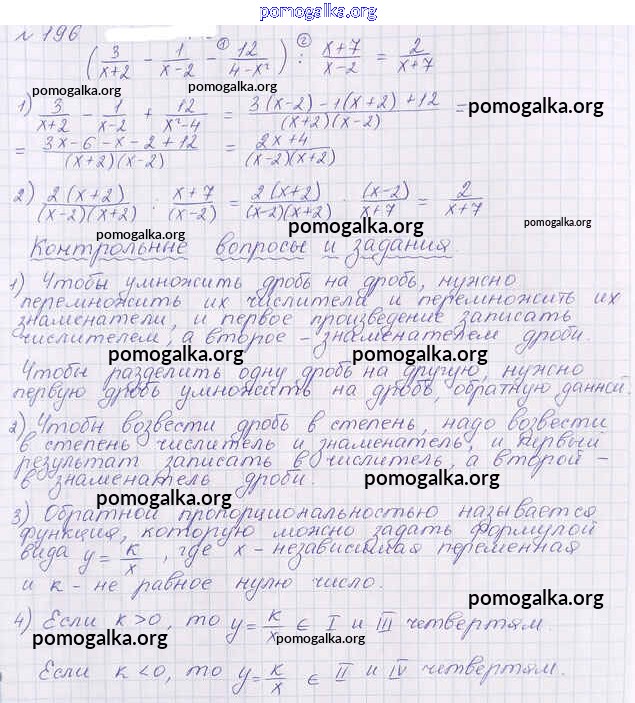 pomogalka.org
№ 196
( 3/(x+2) − 1/(x−2) − ① 12/(4−x²) ) : ② (x+7)/(x−2) = 2/(x+7)
pomogalka.org pomogalka.org
1) 3/(x+2) − 1/(x−2) + 12/(x²−4) = (3(x−2) −1(x+2) +12)/((x+2)(x−2)) = pomogalka.org
= (3x−6−x−2+12)/((x+2)(x−2)) = (2x+4)/((x−2)(x+2))
pomogalka.org
2) 2(x+2)/((x−2)(x+2)) : (x+7)/(x−2) = 2(x+2)/((x−2)(x+2)) · (x−2)/(x+7) = 2/(x+7)
pomogalka.org pomogalka.org
Контрольные вопросы и задания
pomogalka.org
1) Чтобы умножить дробь на дробь, нужно
перемножить их числители и перемножить их
знаменатели, и первое произведение записать
числителем, а второе – знаменателем дроби.
pomogalka.org pomogalka.org
Чтобы разделить одну дробь на другую, нужно
первую дробь умножить на дробь, обратную данной.
2) Чтобы возвести дробь в степень, надо возвести
в степень числитель и знаменатель, и первый
результат записать в числитель, а второй –
в знаменатель дроби.
pomogalka.org pomogalka.org
3) Обратной пропорциональностью называется
функция, которую можно задать формулой
вида y = k/x, где x - независимая переменная
и k - не равное нулю число.
pomogalka.org
4) Если k>0, то y = k/x ∈ I и III четвертям.
pomogalka.org pomogalka.org
Если k<0, то y = k/x ∈ II и IV четвертям.